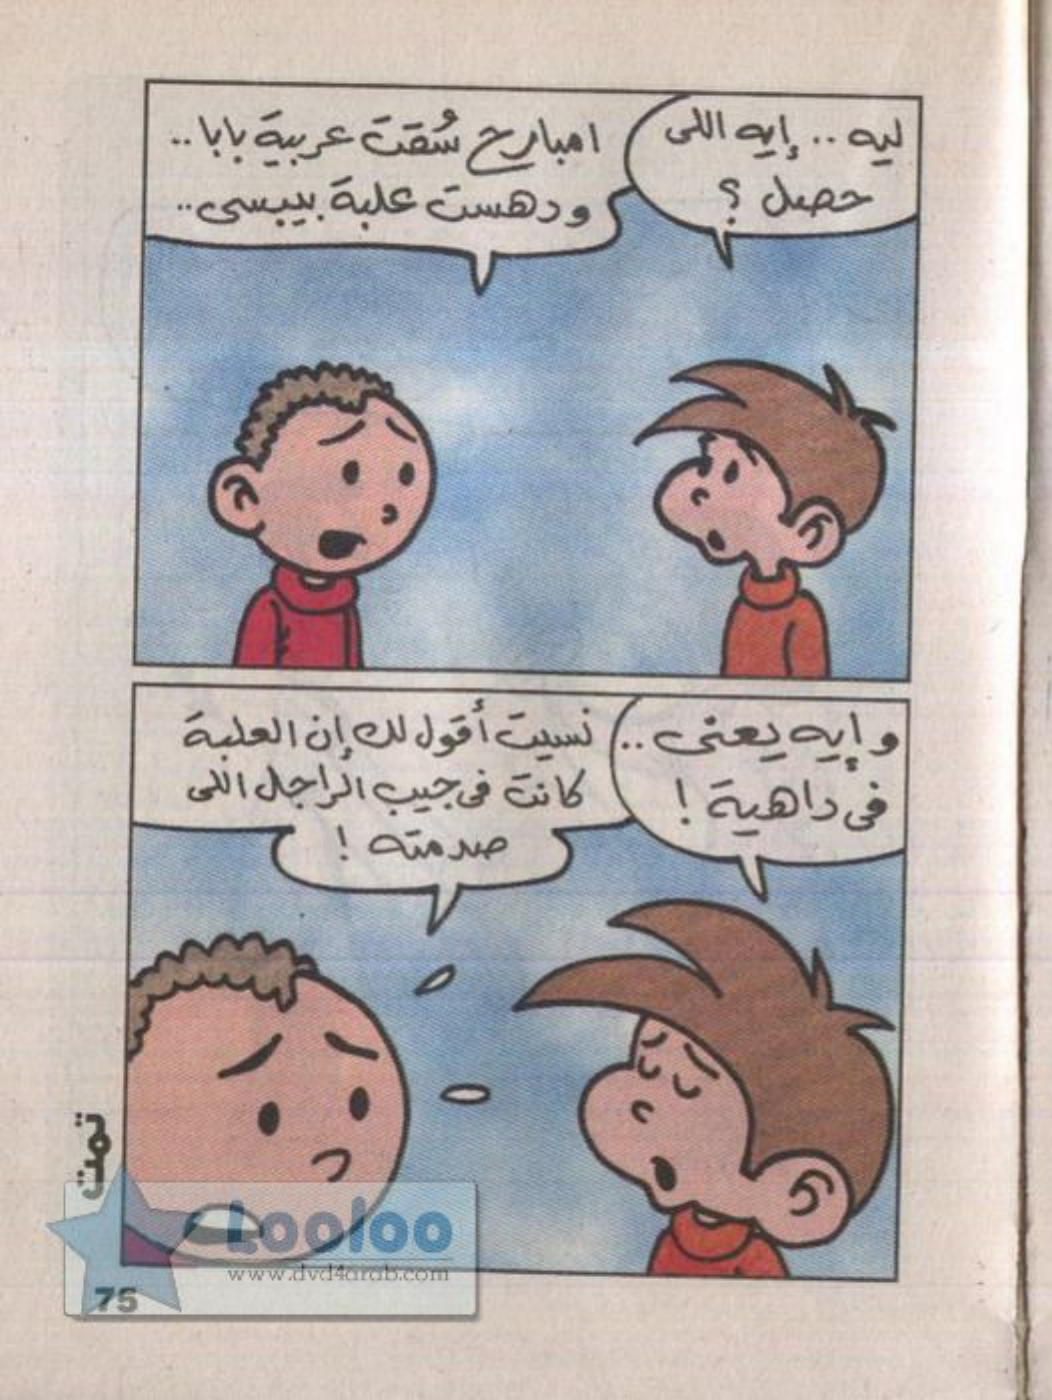 ليه .. إيه اللى
حصل ؟
امبارح سُقت عربية بابا ..
ودهست علبة بيبسى ..
و إيه يعنى ..
فى داهية !
نسيت أقول لك إن العلبة
كانت فى جيب الراجل اللى
صدمته !
تمت
Looloo
www.dvd4arab.com
75